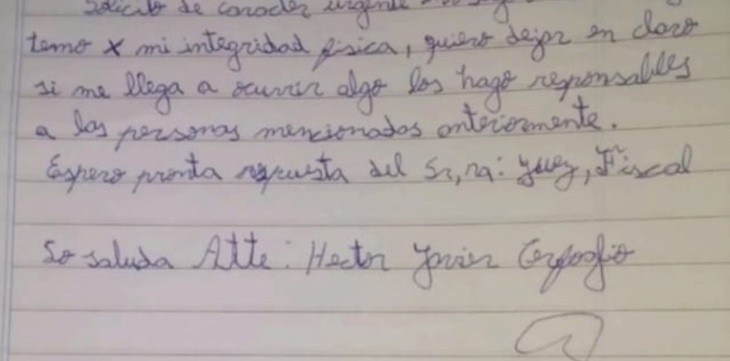 Solicito de caracter urgente
temo x mi integridad fisica, quiero dejar en claro
si me llega a ocurrir algo los hago responsables
a las personas mencionadas anteriormente.
Espero pronta repuesta del Sr, ra: Juez, Fiscal
So saluda Atte: Hector Javier